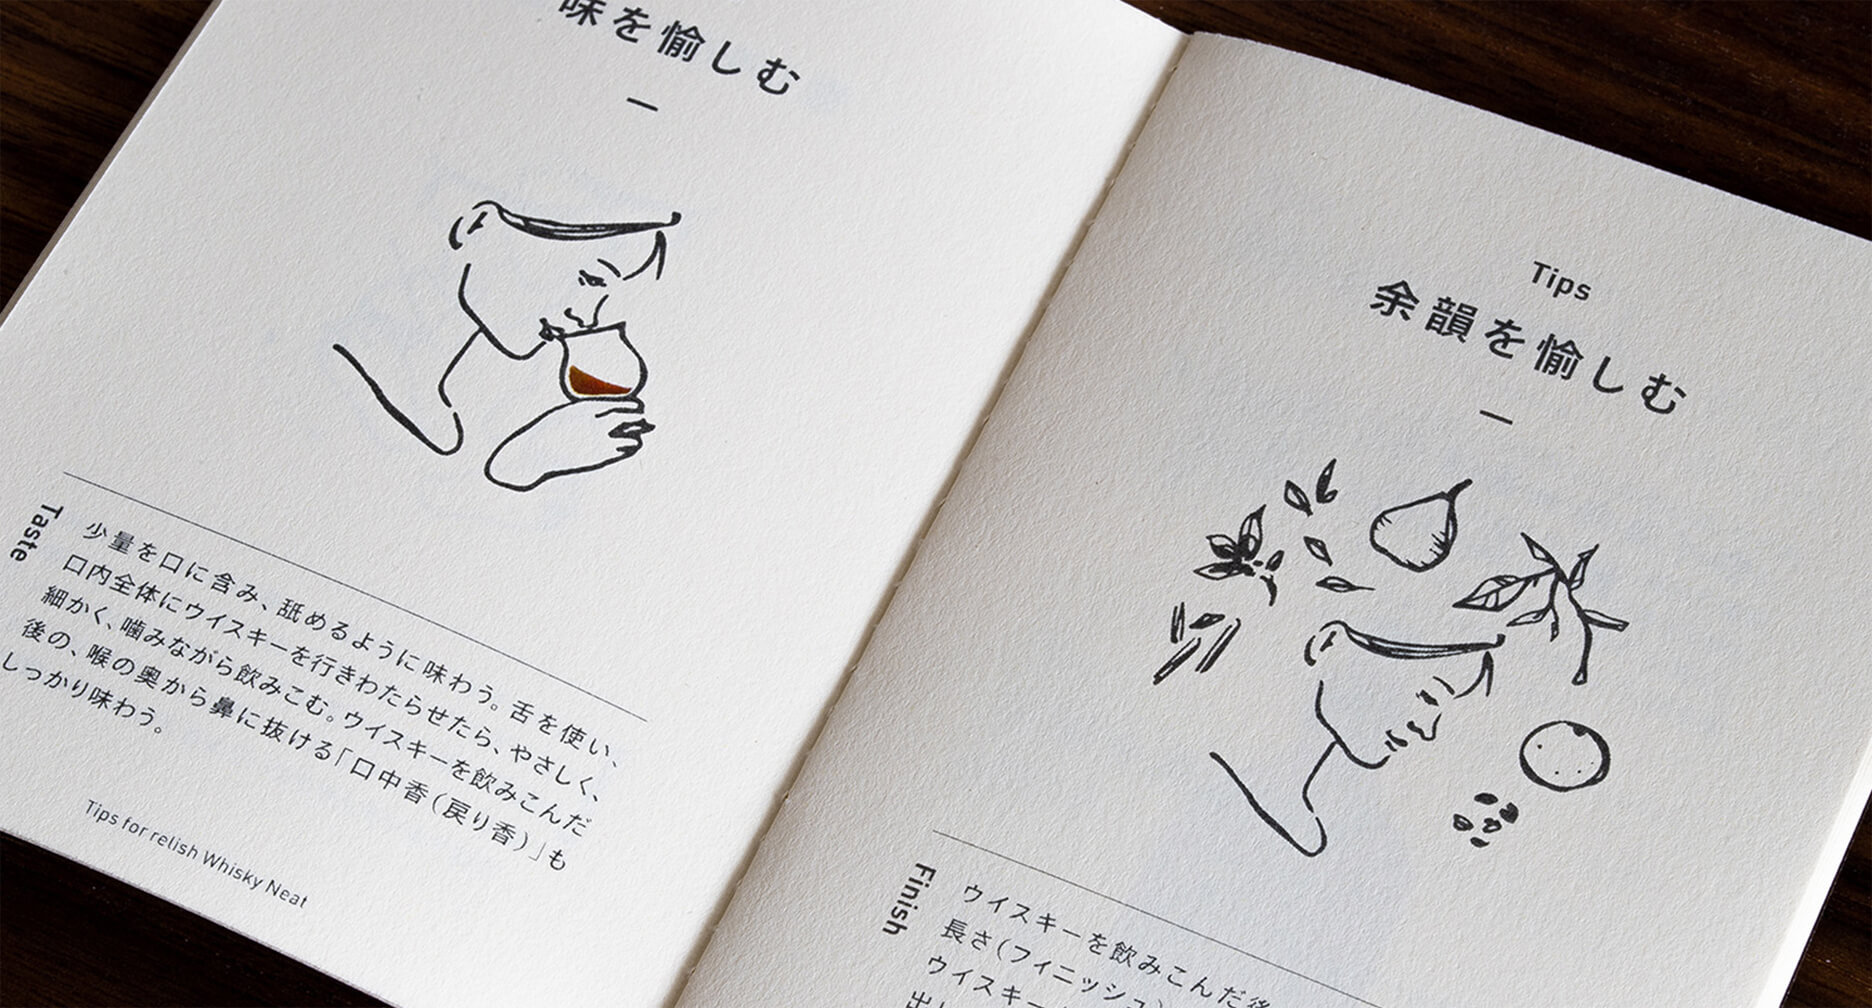 味を愉しむ
Taste
少量を口に含み、舐めるように味わう。舌を使い、
口内全体にウイスキーを行きわたらせたら、やさしく、
細かく、噛みながら飲みこむ。ウイスキーを飲みこんだ
後の、喉の奥から鼻に抜ける「口中香(戻り香)」も
しっかり味わう。
Tips for relish Whisky Neat
Tips
余韻を愉しむ
Finish
ウイスキーを飲みこんだ後
長さ(フィニッシュ)
ウイスキー
出し